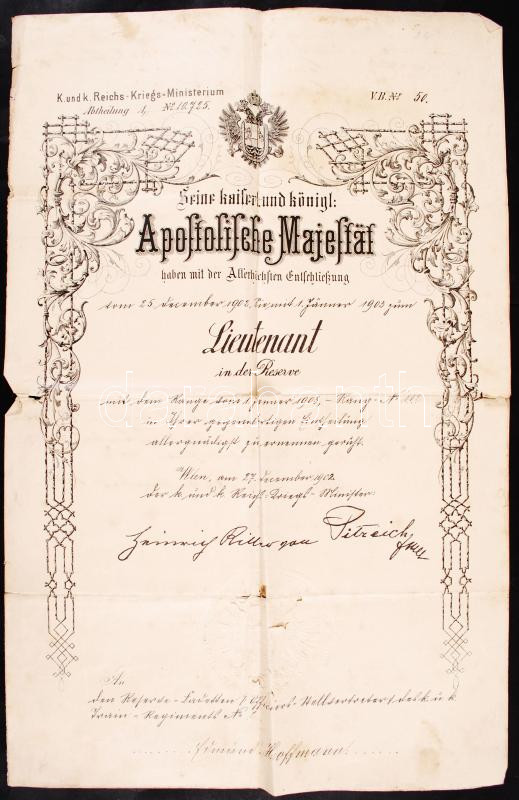 K. und k. Reichs-Kriegs-Ministerium
Abtheilung 1, № 10.725.
V.B. № 50.
Seine kaiserl: und königl:
Apostolische Majestät
haben mit der Allerhöchsten Entschließung
vom 25. December 1902, Sie mit 1. Jänner 1903 zum
Lieutenant
in der Reserve
mit dem Range vom 1. Jänner 1903, – Rang- №
in Ihrer gegenwärtigen Eintheilung
allergnädigst zu ernennen geruht.
Wien, am 27. December 1902.
Der k. und k. Reichs-Kriegs-Minister:
Heinrich Ritter von Pitreich
An
den Reserve-Cadetten / Officiers-Stellvertreter / des k. u. k.
Train-Regiments №
Edmund Hoffmann.